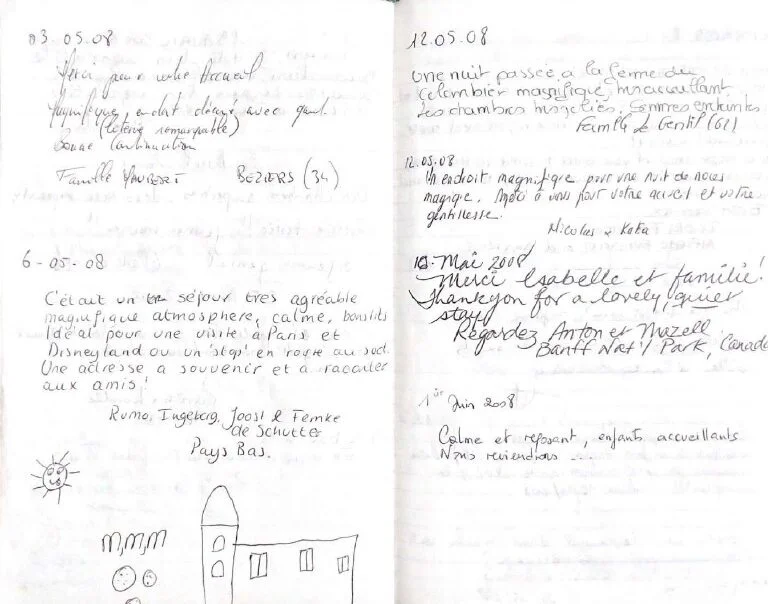 03.05.08
Merci pour votre Accueil
Magnifique, endroit décoré avec goût
(literie remarquable)
Bonne continuation
Famille BEZIERS (34)
6-05-08
C'était un séjour tres agréable
magnifique atmosphere, calme, bons lits
Idéal pour une visite à Paris et
Disneyland ou un 'stop' en route au sud.
Une adresse a souvenir et à raconter
aux amis!
Rumo, Ingeborg, Joost & Femke
de Schutter
Pays Bas.
m,m,m
12.05.08
Une nuit passée à la ferme du
Colombier magnifique,
Les chambres
Famille Le Gentil (61)
12.05.08
Un endroit magnifique pour une nuit de noces
magique. Merci à vous pour votre accueil et votre
gentillesse.
Nicolas & Katia
Mai 2008
Merci Isabelle et famille!
Thankyou for a lovely, quiet
stay
Regardez Anton et Mazell
Banff Nat'l Park, Canada
1er Juin 2008
Calme et reposant, enfants accueillants
Nous reviendrons ...